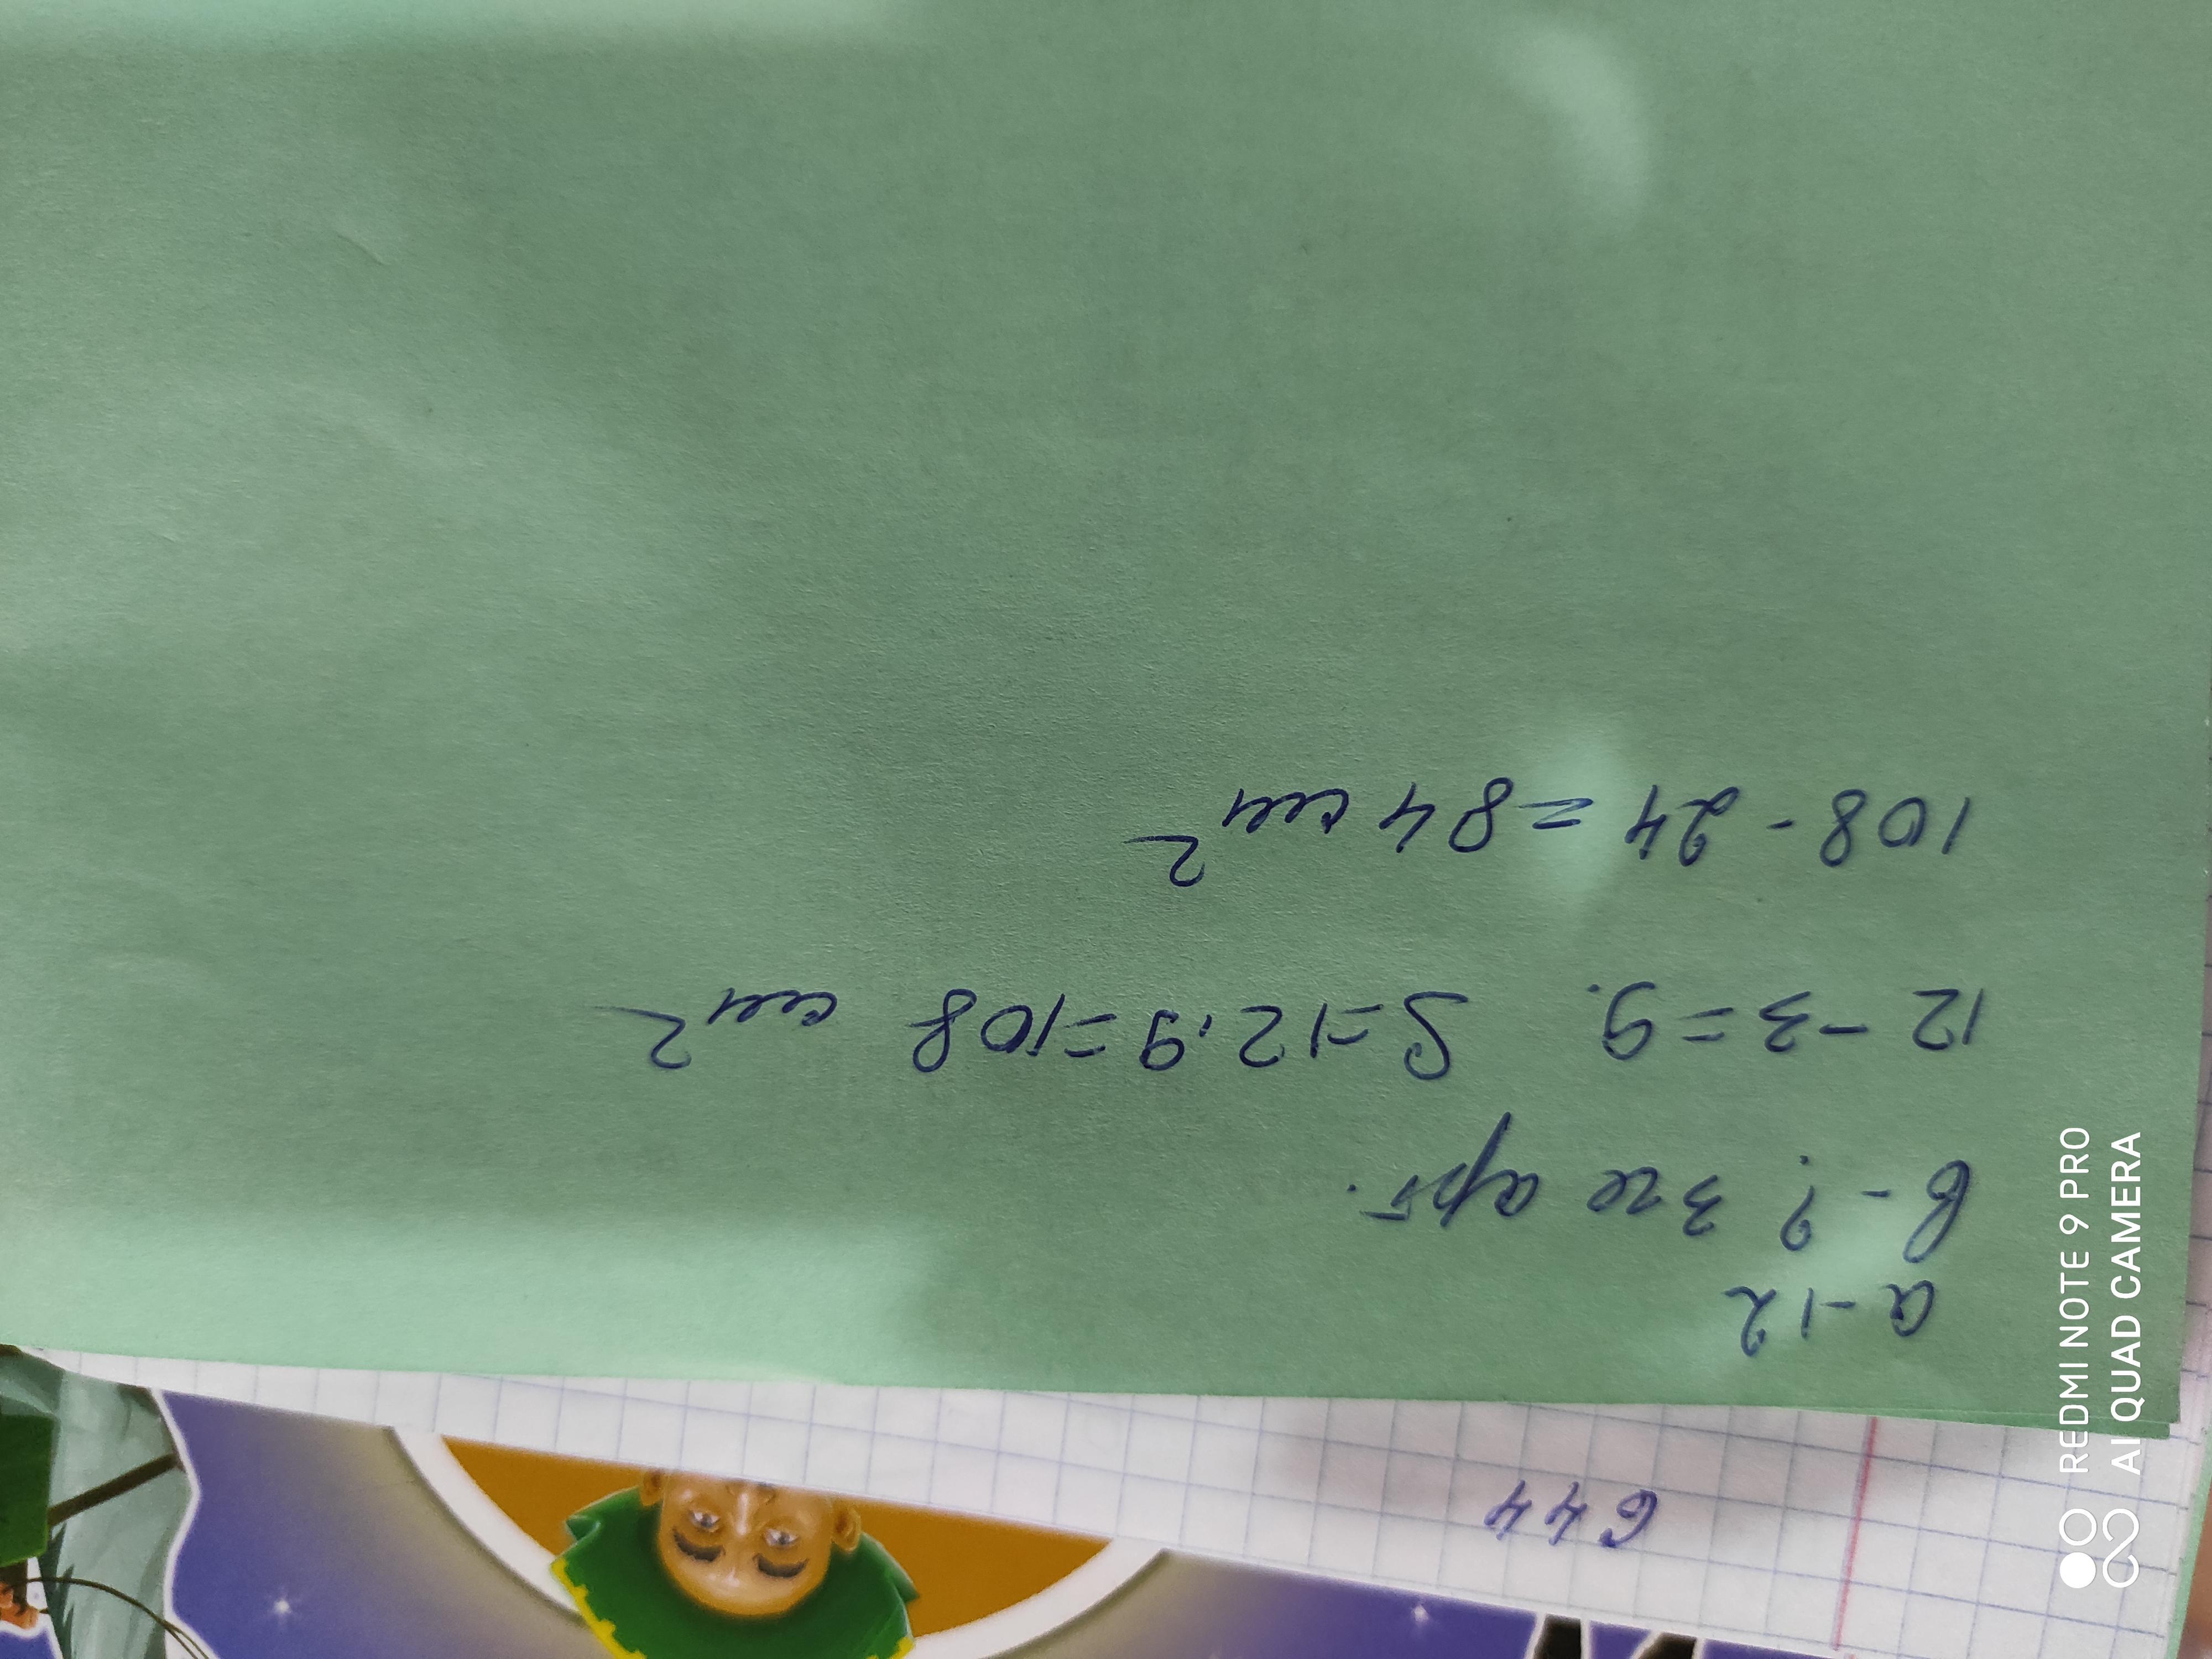 644
a - 12
в - ? 3 ге арт.
12 - 3 = 9. S = 12 . 9 = 108 см²
108 - 24 = 84 см²
REDMI NOTE 9 PRO
AI QUAD CAMERA